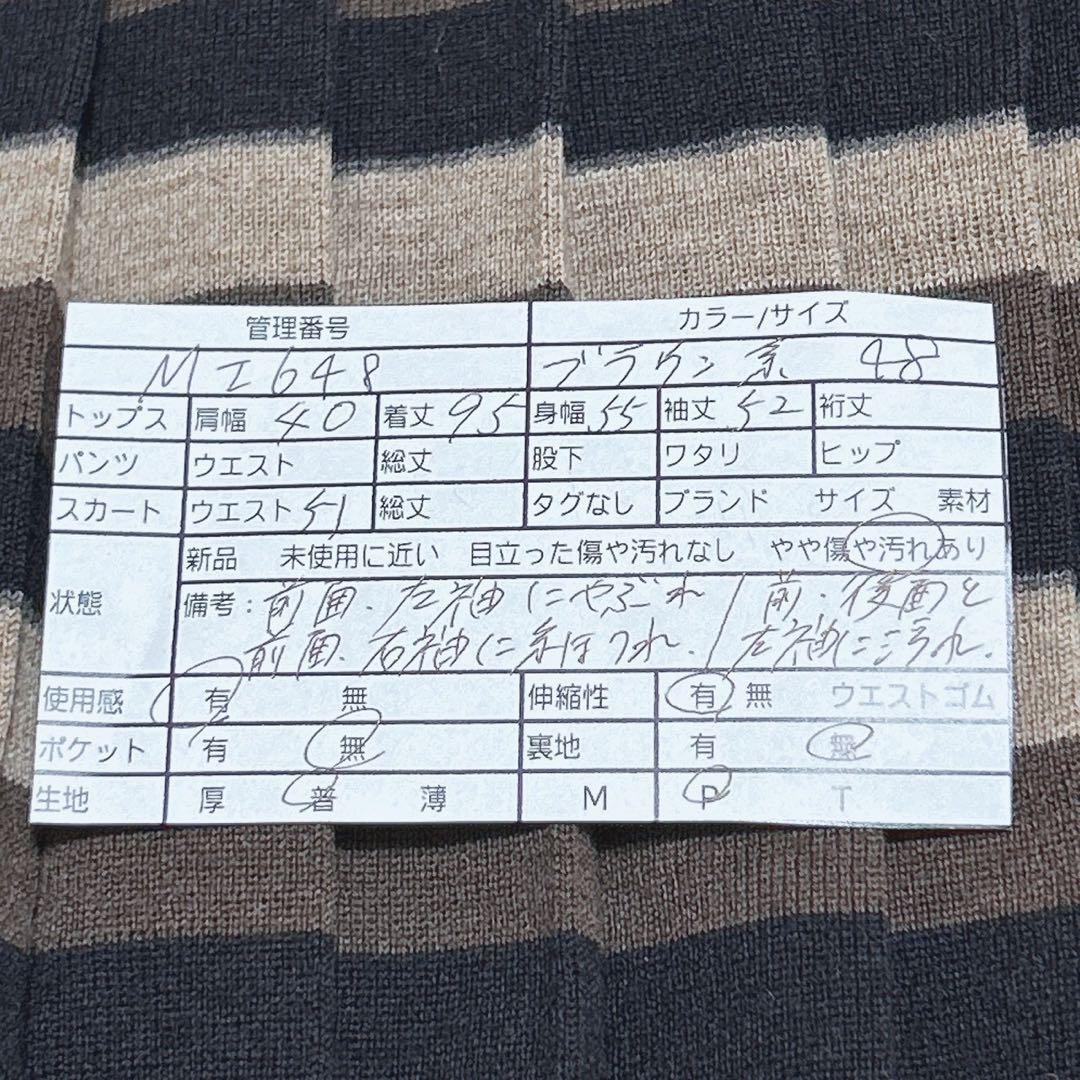 管理番号 カラー/サイズ
MI648 ブラウン系 48
トップス 肩幅 40 着丈 95 身幅 55 袖丈 52 裄丈
パンツ ウエスト 総丈 股下 ワタリ ヒップ
スカート ウエスト 51 総丈 タグなし ブランド サイズ 素材
新品 未使用に近い 目立った傷や汚れなし やや傷や汚れあり
状態 備考: 前面、左袖にやぶれ / 前・後面と
前面、右袖に糸ほつれ、/ 左袖によごれ、
使用感 有 無 伸縮性 有 無 ウエストゴム
ポケット 有 無 裏地 有 無
生地 厚 普 薄 M P T